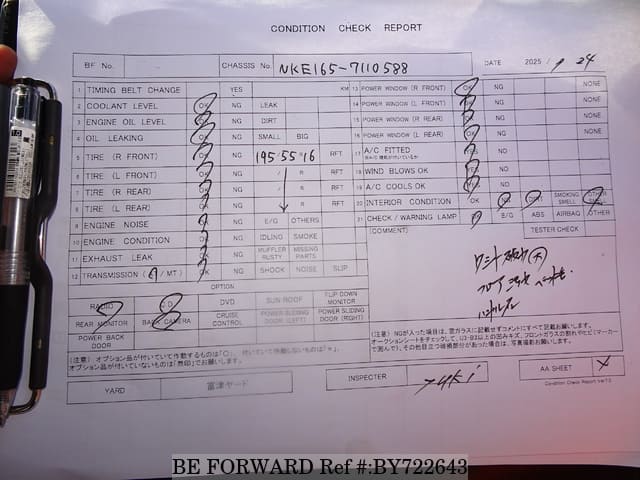 CONDITION CHECK REPORT
BF No. CHASSIS No. NKE165-7110588 DATE 2025/ 1 24
1 TIMING BELT CHANGE YES KM
2 COOLANT LEVEL OK NG LEAK
3 ENGINE OIL LEVEL OK NG DIRT
4 OIL LEAKING OK NG SMALL BIG
5 TIRE (R FRONT) OK NG 195/55/16 RFT
6 TIRE (L FRONT) OK NG / R RFT
7 TIRE (R REAR) OK NG / R RFT
8 TIRE (L REAR) OK NG / R RFT
9 ENGINE NOISE NG E/G OTHERS
10 ENGINE CONDITION OK NG IDLING SMOKE
11 EXHAUST LEAK OK NG MUFFLER RUSTY MISSING PARTS
12 TRANSMISSION (A/MT) OK NG SHOCK NOISE SLIP
13 POWER WINDOW (R FRONT) OK NG NONE
14 POWER WINDOW (L FRONT) OK NG NONE
15 POWER WINDOW (R REAR) OK NG NONE
16 POWER WINDOW (L REAR) OK NG NONE
17 A/C FITTED NO
18 WIND BLOWS OK YES NO
19 A/C COOLS OK YES NO
20 INTERIOR CONDITION OK DIRT SMOKING SMELL OTHER
21 CHECK/WARNING LAMP B/G ABS AIRBAG OTHER
(COMMENT) TESTER CHECK
OPTION
RADIO CD DVD SUN ROOF FLIP DOWN MONITOR
REAR MONITOR BACK CAMERA CRUISE CONTROL POWER SLIDING DOOR (LEFT) POWER SLIDING DOOR (RIGHT)
POWER BACK DOOR
(注意) オプション品が付いていて作動するものは「○」、付いていて作動しないものは「×」、
オプション品が付いていないものは「無印」でお願いします。
(注意) NGが入った場合は、必ずコメントにすべて記載お願いします。
YARD 富津ヤード
INSPECTER
AA SHEET
Condition Check Report Ver7.0
BE FORWARD Ref #:BY722643